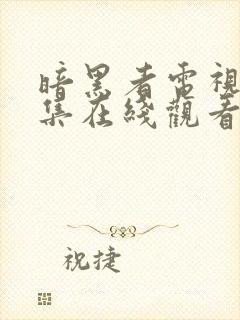 暗黑者電視
集在綫觀看
祝捷